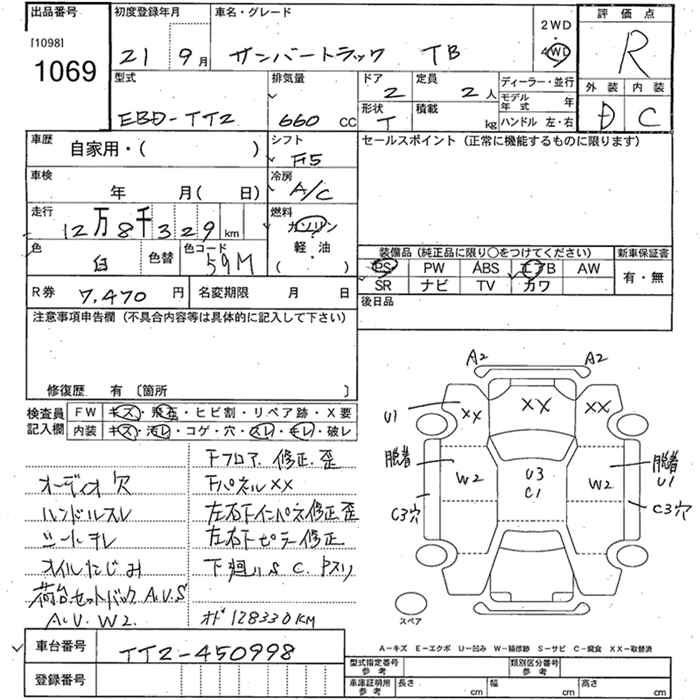 出品番号 初度登録年月 車名・グレード 2WD 評価点
[1098] 21 9月 サンバートラック TB 4WD R
1069 型式 排気量 ドア 定員 ディーラー・並行 外装 内装
2 2人 モデル年式 年 D C
EBD-TT2 660 CC 形状 積載 kg ハンドル 左・右
T
車歴 自家用・( ) シフト F5 セールスポイント (正常に機能するものに限ります)
車検 年 月( 日) 冷房 A/C
走行 12万8千329km 燃料 ガソリン
軽・油
( )
色 白 色替 色コード 59M 装備品 (純正品に限り○をつけてください) 新車保証書
PS PW ABS エアB AW 有・無
SR ナビ TV カワ
R券 7,470円 名変期限 月 日 後日品
注意事項申告欄 (不具合内容等は具体的に記入して下さい)
修復歴 有 〔箇所 〕
検査員記入欄 FW キズ・飛石・ヒビ割・リペア跡・X要
内装 キズ・汚レ・コゲ・穴・スレ・キレ・破レ
Fフロア 修正.歪
オーディオ欠 FパネルXX
ハンドルスレ 左右Fインパネ修正歪
シートキレ 左右Fピラー修正
オイルにじみ 下廻りS C.
荷台セットバック A.U.S
A.U.W2. オド128330KM
A2 A2
U1 XX XX XX
脱着 W2 U3 W2 脱着
C1 U1
C3穴 C3穴
スペア
A-キズ E-エクボ U-凹み W-補修跡 S-サビ C-腐食 XX-取替済
車台番号 TT2-450998
型式指定番号 参考 類別区分番号 参考
登録番号 車庫証明用 参考 長さ cm 幅 cm 高さ cm